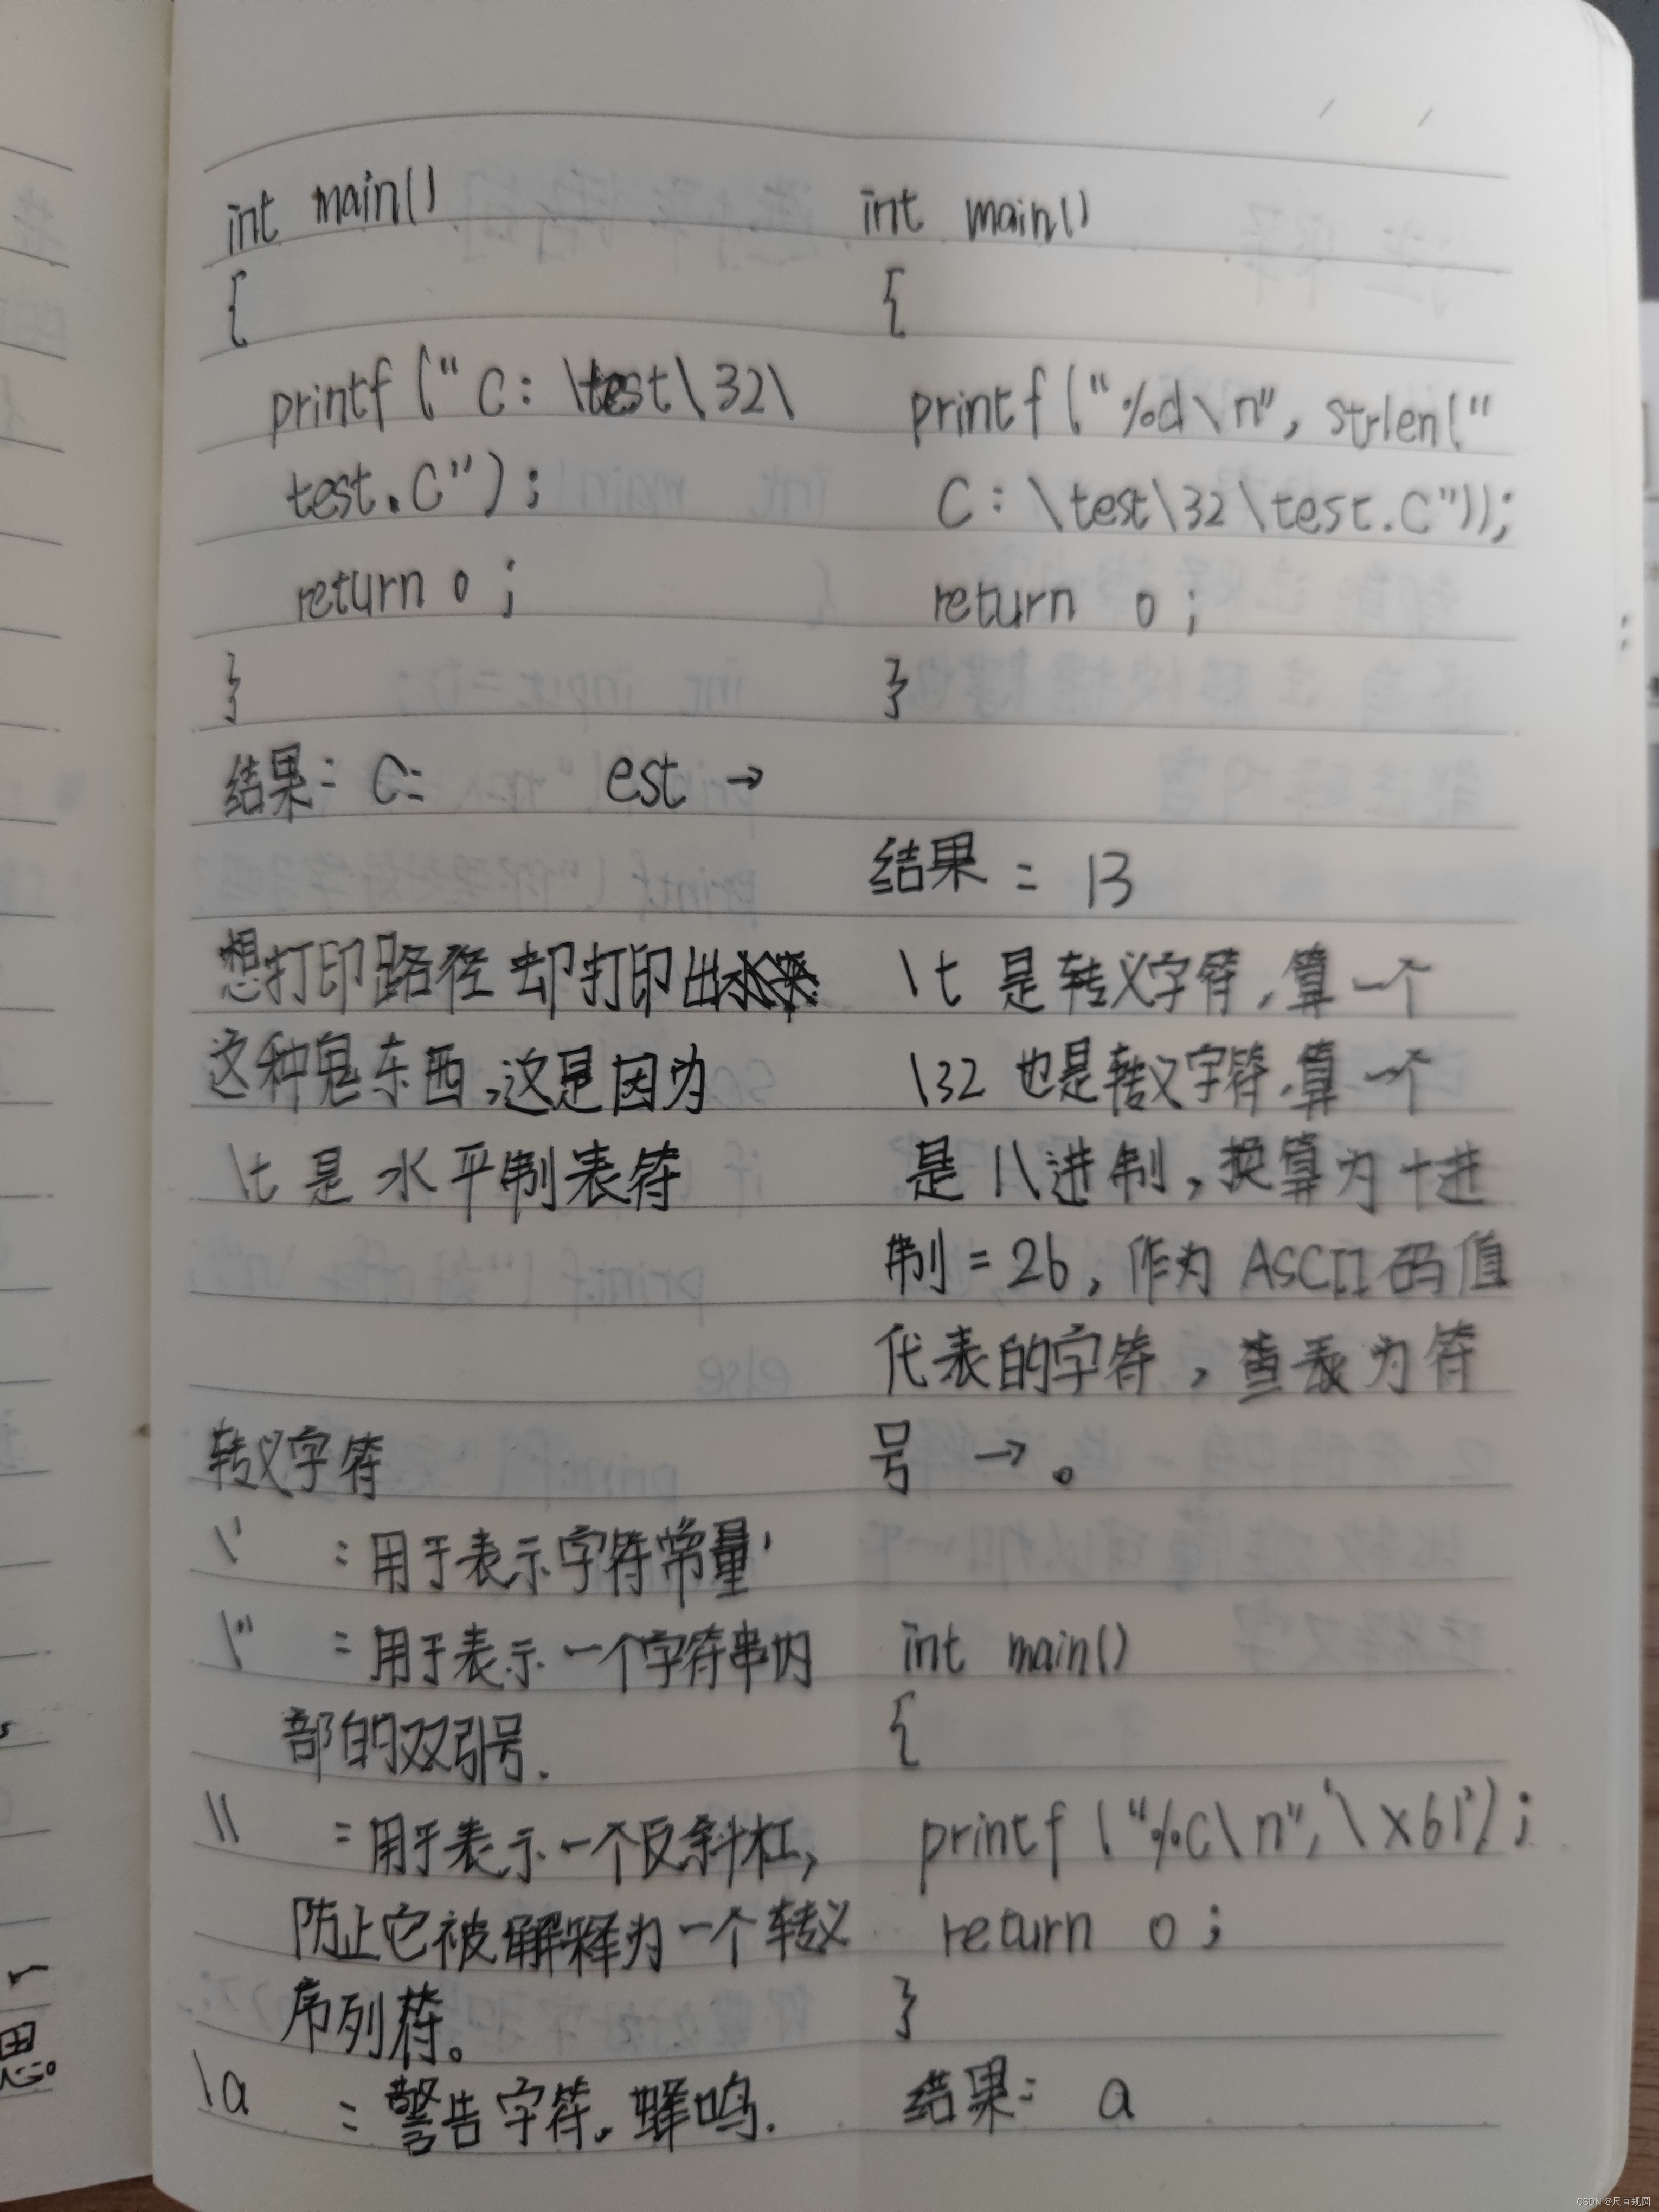 int main()
{
printf("C:\test\32\
test.C");
return 0;
}
结果: C:     est →
想打印路径却打印出
这种鬼东西,这是因为
\t 是水平制表符
转义字符
\' :用于表示字符常量'
\" :用于表示一个字符串内
部的双引号.
\\ :用于表示一个反斜杠,
防止它被解释为一个转义
序列符。
\a :警告字符。蜂鸣.
int main()
{
printf("%d\n", strlen("
C:\test\32\test.C"));
return 0;
}
结果 = 13
\t 是转义字符,算一个
\32 也是转义字符,算一个
是八进制,换算为十进
制 = 26, 作为 ASCII 码值
代表的字符,查表为符
号 → 。
int main()
{
printf("%c\n",'\x61');
return 0;
}
结果: a
CSDN @尺直规圆